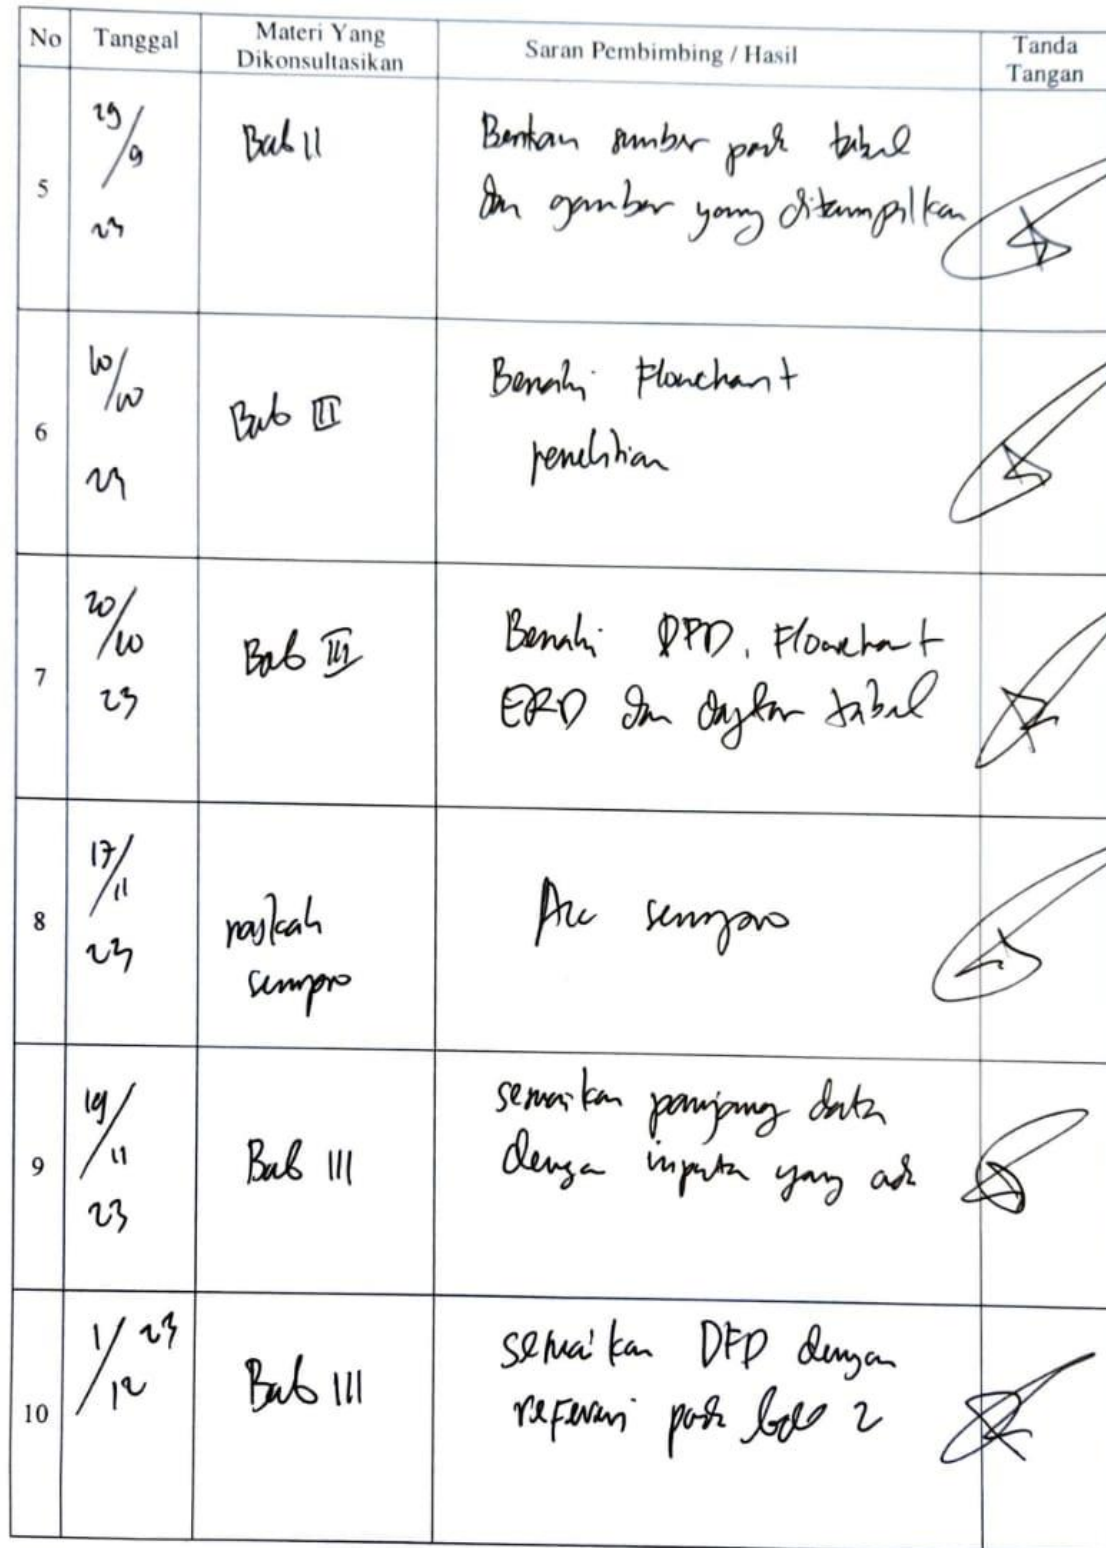 No Tanggal Materi Yang Dikonsultasikan Saran Pembimbing / Hasil Tanda Tangan
5
29/9
23
Bab II
Berikan sumber pada tabel
dan gambar yang ditampilkan
6
10/10
23
Bab III
Benahi Flowchart
penelitian
7
20/10
23
Bab III
Benahi DFD, Flowchart
ERD dan daftar tabel
8
17/11
23
naskah
sempro
Acc sempro
9
19/11
23
Bab III
sesuaikan panjang data
dengan inputan yang ada
10
1/12 23
Bab III
sesuaikan DFD dengan
referensi pada bab 2